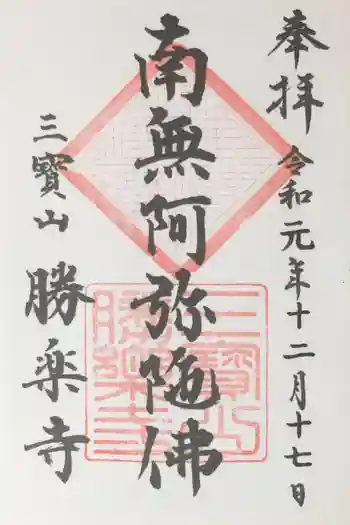 奉拝
令和元年十二月十七日
南無阿弥陁佛
三寳山
勝楽寺
三寳山
勝樂寺